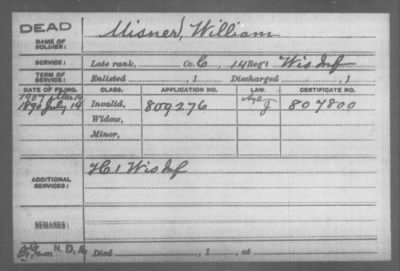 DEAD
NAME OF SOLDIER: Misner, William
SERVICE: Late rank, Co. C, 14 Reg't Wis Inf
TERM OF SERVICE: Enlisted , 1 Discharged , 1
DATE OF FILING. CLASS. APPLICATION NO. LAW. CERTIFICATE NO.
1907 Mar 14 Age
1890 July 14 Invalid, 809276 J 807800
Widow,
Minor,
ADDITIONAL SERVICES: H 1 Wis Inf
REMARKS:
N. D. A. Died , 1 , at